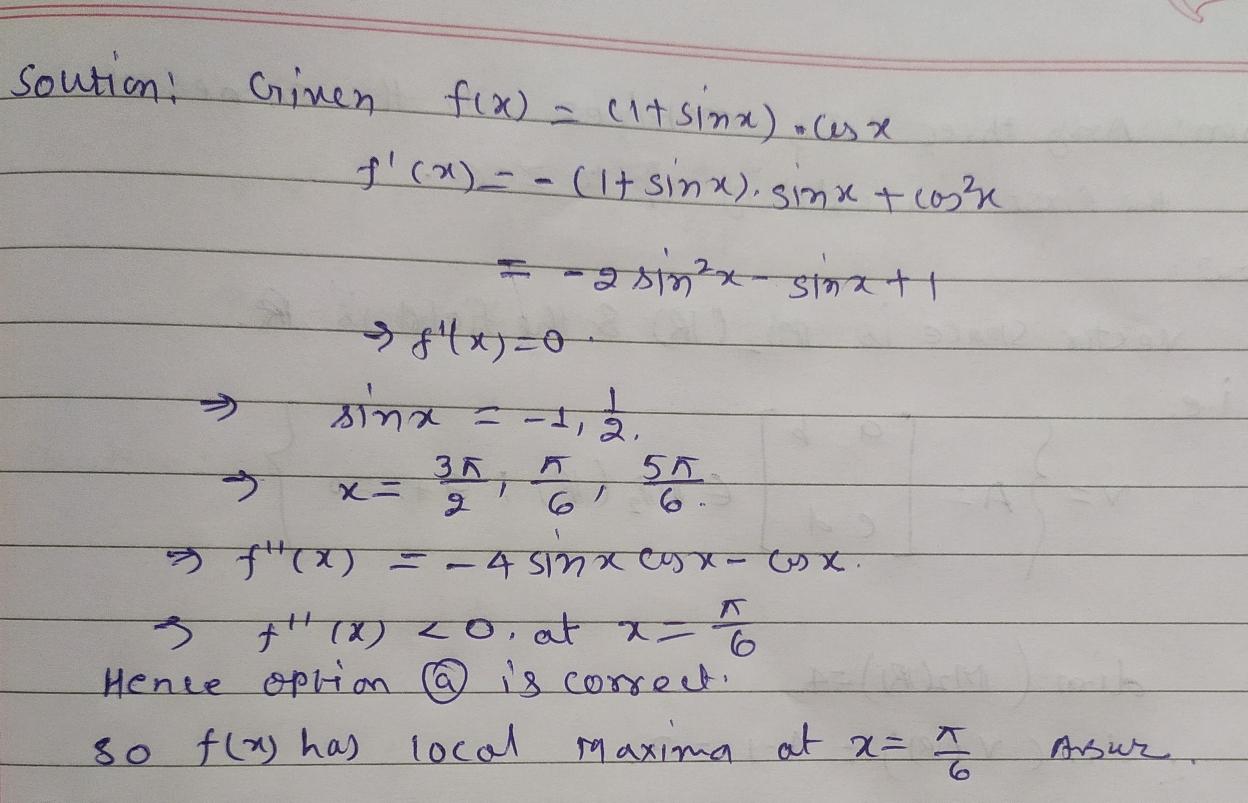 Soution: Given f(x) = (1+sinx).cosx
f'(x) = -(1+sinx).sinx + cos²x
= -2sin²x - sinx + 1
⇒ f'(x) = 0.
⇒ sinx = -1, 1/2.
⇒ x = 3π/2, π/6, 5π/6.
⇒ f''(x) = -4 sinx cosx - cosx.
⇒ f''(x) < 0, at x = π/6
Hence option ⓐ is correct.
so f(x) has local maxima at x = π/6